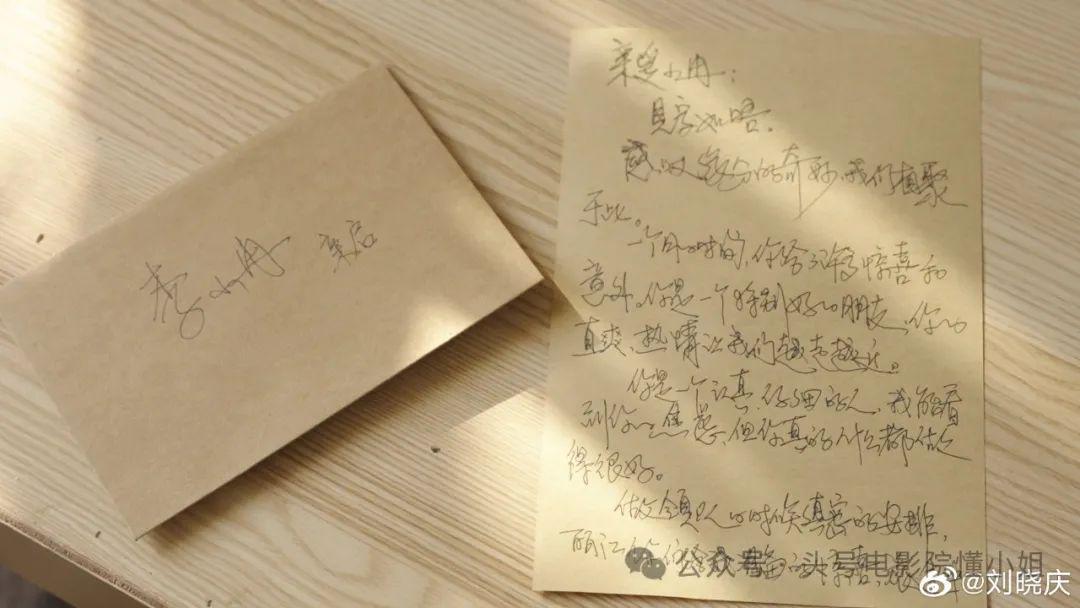 李小冉 亲启
亲爱小冉：
见字如晤。
感叹缘分的奇妙，我们相聚
于此。
一个月的时间，你给了我惊喜和
意外。你是一个特别好的朋友，你的
直爽、热情让我们越走越近。
你是一个认真、仔细的人，我能看
到你的焦虑，但你真的什么都做
得很好。
做领队的时候缜密的安排，
丽江
公众号 头号电影院懂小姐
@刘晓庆